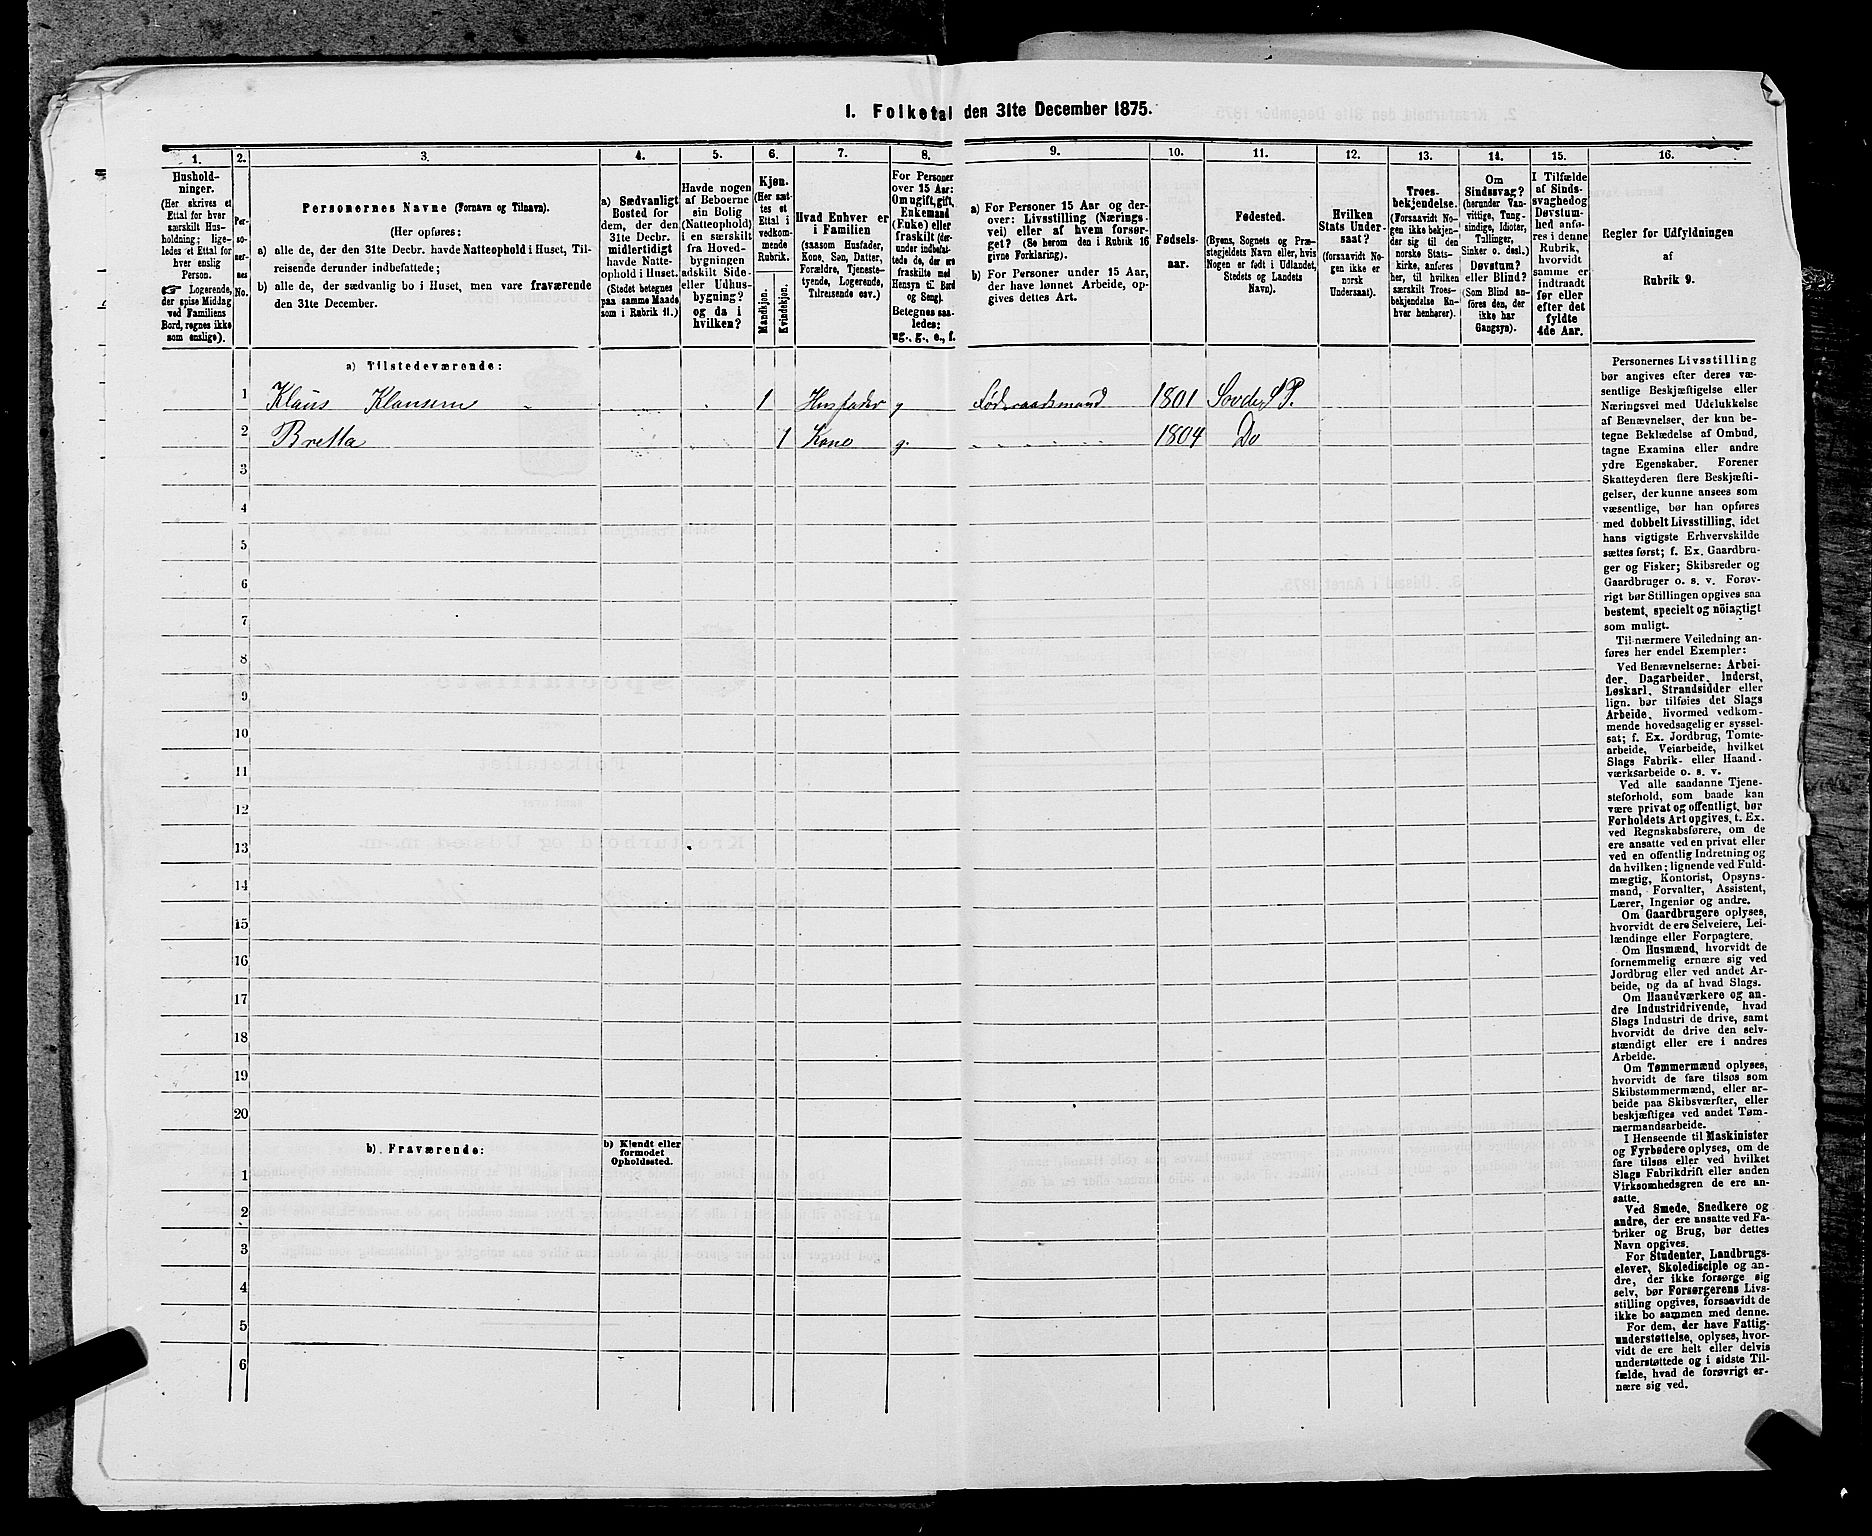 1. Folketal den 31te December 1875.
1. 2. 3. 4. 5. 6. 7. 8. 9. 10. 11. 12. 13. 14. 15. 16.
Hushold-
ninger.
(Her skrives et
Ettal for hver
særskilt Hus-
holdning; lige-
ledes et Ettal for
hver enslig
Person.
☞ Logerende,
der spise Middag
ved Familiens
Bord, regnes ikke
som enslige).
Per-
so-
ner-
nes
No.
Personernes Navne (Fornavn og Tilnavn).
(Her opføres:
a) alle de, der den 31te Decbr. havde Natteophold i Huset, Til-
reisende derunder indbefattede;
b) alle de, der sædvanlig bo i Huset, men vare fraværende
den 31te December.
a) Sædvanligt
Bosted for
dem, der den
31te Decbr.
midlertidigt
havde Natte-
ophold i Huset.
(Stedet betegnes
paa samme Maade
som i Rubrik 11.)
Havde nogen
af Beboerne
sin Bolig
(Natteophold)
i en særskilt
fra Hoved-
bygningen
adskilt Side-
eller Udhus-
bygning?
og da i
hvilken?
Kjøn.
(Her sæt-
tes et
Ettal i
vedkom-
mende
Rubrik.
Mandkjøn.
Kvindekjøn.
Hvad Enhver er
i Familien
(saasom Husfader,
Kone, Søn, Datter,
Forældre, Tjeneste-
tyende, Logerende,
Tilreisende osv.)
For Personer
over 15 Aar:
Om ugift, gift,
Enkemand
(Enke) eller
fraskilt (der-
under indbefat-
tede de, der ere
fraskilte med
Hensyn til Bord
og Seng).
Betegnes saa-
ledes:
ug., g., e., f.
a) For Personer 15 Aar og der-
over: Livsstilling (Nærings-
vei) eller af hvem forsør-
get? (Se herom den i Rubrik 16
givne Forklaring).
b) For Personer under 15 Aar,
der have lønnet Arbeide, op-
gives dettes Art.
Fødsels-
aar.
Fødested.
(Byens, Sognets og Præ-
stegjeldets Navn eller, hvis
Nogen er født i Udlandet,
Stedets og Landets
Navn).
Hvilken
Stats Under-
saat?
(forsaavidt No-
gen ikke er
norsk
Undersaat).
Troes-
bekjendelse.
(Forsaavidt No-
gen ikke bekjen-
der sig til den
norske Stats-
kirke, anføres
her, til hvilken
særskilt Troes-
bekjendelse En-
hver henhører).
Om
Sindssvag?
(herunder Van-
vittige, Tung-
sindige, Idioter,
Tullinger,
Sinker o. desl.)
Døvstum?
eller Blind?
(Som Blind an-
føres den, der
ikke har
Gangsyn).
I Tilfælde
af Sinds-
svaghed og
Døvstum-
hed anfø-
res i denne
Rubrik,
hvorvidt
samme er
indtraadt
før eller
efter det
fyldte
4de Aar.
Regler for Udfyldningen
af
Rubrik 9.
a) Tilstedeværende:
1 Klaus Klausen 1 Husfader g Føderaadsmand 1801 Sovde S P.
2 Bretta 1 Kone g. 1804 Do
3
4
5
6
7
8
9
10
11
12
13
14
15
16
17
18
19
20
b). Fraværende:
b) Kjendt eller
formodet
Opholdssted.
1
2
3
4
5
6
Personernes Livsstilling
bør angives efter deres væ-
sentlige Beskjæftigelse eller
Næringsvei med Udelukkelse
af Benævnelser, der kun be-
tegne Beklædelse af Ombud,
tagne Examina eller andre
ydre Egenskaber. Forener
Skatteyderen flere Beskjæfti-
gelser, der kunne ansees som
væsentlige, bør han opføres
med dobbelt Livsstilling, idet
hans vigtigste Erhvervskilde
sættes først; f. Ex. Gaardbru-
ger og Fisker; Skibsreder og
Gaardbruger o. s. v. Forøv-
rigt bør Stillingen opgives saa
bestemt, specielt og nöiagtigt
som muligt.
Til nærmere Veiledning an-
føres her endel Exempler:
Ved Benævnelserne: Arbei-
der, Dagarbeider, Inderst,
Løskarl, Strandsidder eller
lign. bør tilføies det Slags
Arbeide, hvormed vedkom-
mende hovedsagelig er syssel-
sat; f. Ex. Jordbrug, Tomte-
arbeide, Veiarbeide, hvilket
Slags Fabrik- eller Haand-
værksarbeide o. s. v.
Ved alle saadanne Tjene-
steforhold, som baade kan
være privat og offentligt, bør
Forholdets Art opgives, t. Ex.
ved Regnskabsførere, om de
ere ansatte ved en privat eller
ved en offentlig Indretning og
da hvilken; lignende ved Fuld-
mægtig, Kontorist, Opsyns-
mand, Forvalter, Assistent,
Lærer, Ingeniør og andre.
Om Gaardbrugere oplyses,
hvorvidt de ere Selveiere, Lei-
lændinge eller Forpagtere.
Om Husmænd, hvorvidt de
fornemmelig ernære sig ved
Jordbrug eller ved andet Ar-
beide, og da af hvad Slags.
Om Haandværkere og an-
dre Industridrivende, hvad
Slags Industri de drive, samt
hvorvidt de drive den selv-
stændigt eller ere i andres
Arbeide.
Om Tømmermænd oplyses,
hvorvidt de fare tilsøs som
Skibstømmermænd, eller ar-
beide paa Skibsværfter, eller
beskjæftiges ved andet Tøm-
mermandsarbeide.
I Henseende til Maskinister
og Fyrbødere oplyses, om de
fare tilsøs eller ved hvilket
Slags Fabrikdrift eller anden
Virksomhedsgren de ere an-
satte.
Ved Smede, Snedkere og
andre, der ere ansatte ved Fa-
briker og Brug, bør dettes
Navn opgives.
For Studenter, Landbrugs-
elever, Skoledisciple og an-
dre, der ikke forsørge sig
selv, bør Forsørgerens Livs-
stilling opgives, forsaavidt de
ikke bo sammen med denne.
For dem, der have Fattig-
understøttelse, oplyses, hvor-
vidt de ere helt eller delvis
understøttede og i sidste Til-
fælde, hvad de forøvrigt er-
nære sig ved.